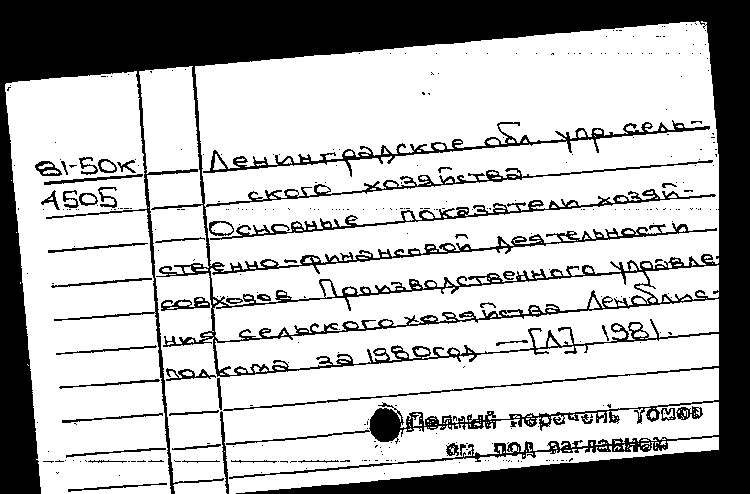 81-50к
4505
Ленинградское обл. упр. сель-
ского хозяйства.
Основные показатели хозяй-
ственно-финансовой деятельности
совхозов. Производственного управле-
ния сельского хозяйства Леноблис-
полкома за 1980 год — [Л.], 1981.
Полный перечень томов
см. под заглавием